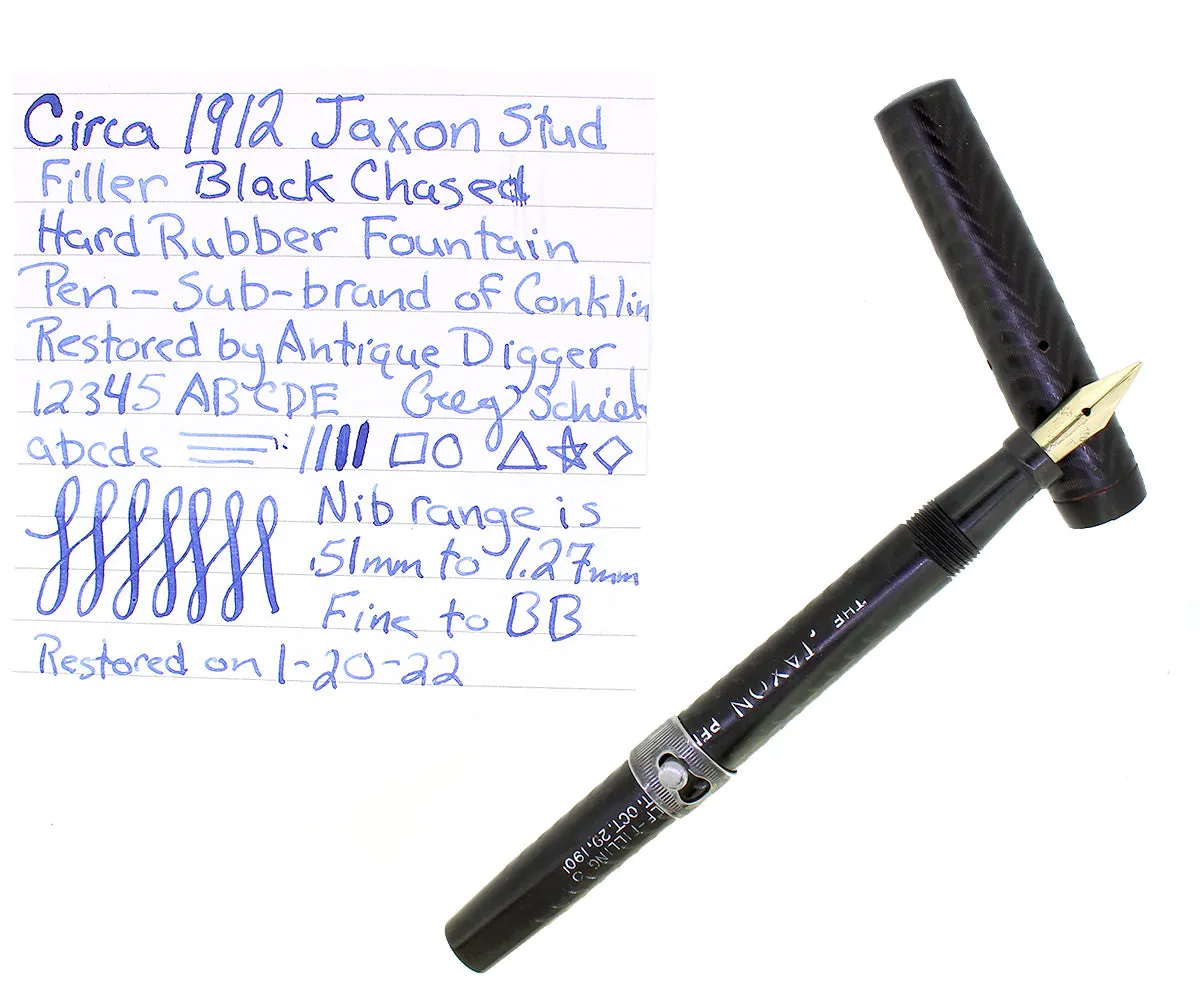 Circa 1912 Jaxon Stud
Filler Black Chased
Hard Rubber Fountain
Pen - Sub-brand of Conklin
Restored by Antique Digger
12345 ABCDE Greg
abcde
Nib range is
.51mm to 1.27mm
Fine to BB
Restored on 1-20-22
THE JAXON PEN
T. OCT. 29, 1901